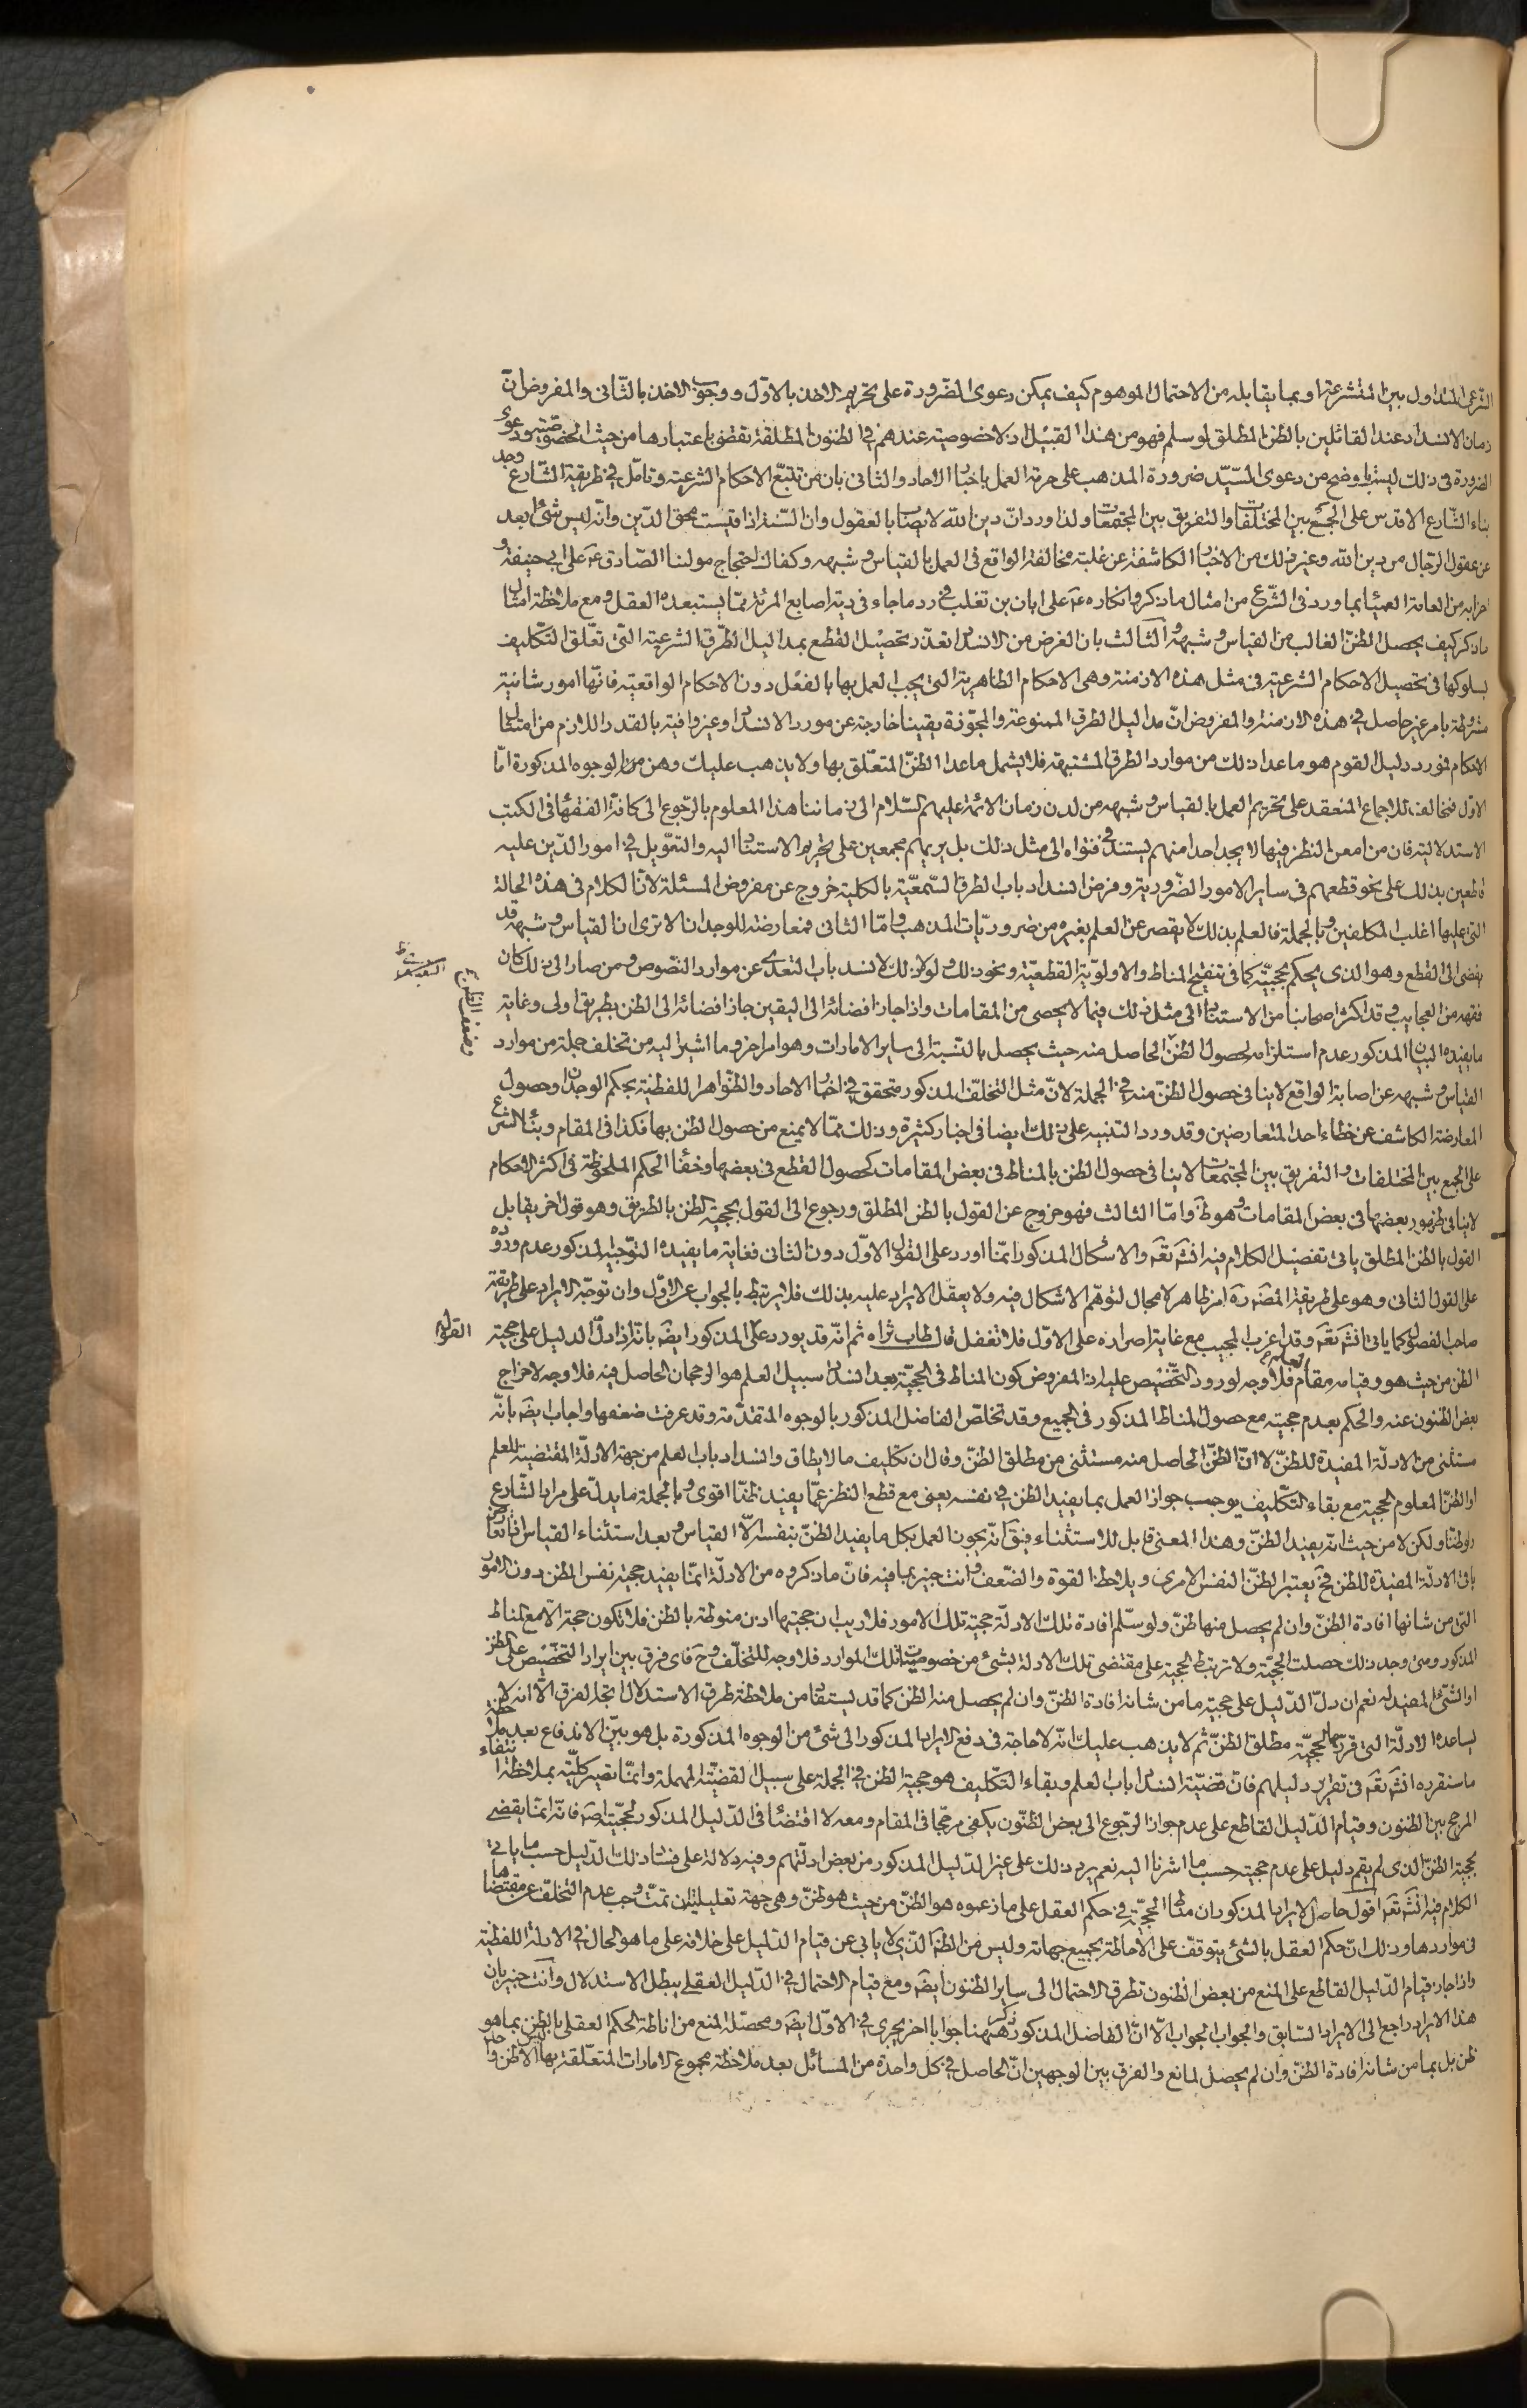 الشرعى المتداول بين المتشرعة او بما يقابله من الاحتمال الموهوم كيف يمكن دعوى الضّرورة على تحريم الاخذ بالاوّل ووجوب الاخذ بالثّانى والمفروض انّ
زمان الانسداد عند القائلين بالظن المطلق لو سلم فهو من هذا القبيل اذ لا خصوصيته عندهم فى الظنون المطلقة تقضى باعتبارها من حيث الخصوصيّة ودعوى
الضرورة فى ذلك ليست باوضح من دعوى السّيّد ضرورة المذهب على حرمة العمل باخبار الاحاد والثانى بان من تتبّع الاحكام الشرعيّة وتامّل فى طريقة الشّارع وجد
بناء الشّارع الاقدس على الجمع بين المختلفات والتفريق بين المجتمعات ولذا ورد انّ دين الله لا يصاب بالعقول وان السّنة اذا قيست محق الدّين وانّه ليس شئ ابعد
عن عقول الرّجال من دين الله وغير ذلك من الاخبار الكاشفة عن غلبة مخالفة الواقع فى العمل بالقياس وشبهه وكفاك احتجاج مولنا الصّادق عَم على ابى حنيفة و
احزابه من العامة العمياء بما ورد فى الشّرع من امثال ما ذكر وانكاره عَم على ابان بن تغلب فى رد ما جاء فى دية اصابع المرئة ممّا يستبعده العقل ومع ملاحظة امثال
ما ذكر كيف يحصل الظنّ الغالب من القياس وشبهه والثالث بان الغرض من الانسداد تعذّر تحصيل القطع بمداليل الطّرق الشرعيّة الّتى تعلّق التّكليف
بسلوكها فى تحصيل الاحكام الشرعيّة فى مثل هذه الازمنة وهى الاحكام الظاهريّة التى يجب العمل بها بالفعل دون الاحكام الواقعيّة فانّها امور شانيّة
مشروطة بامر غير حاصل فى هذه الازمنة والمفروض انّ مداليل الطرق الممنوعة والمجوّزة يقينا خارجة عن مورد الانسداد وغير وافية بالقدر اللازم من امتثال
الاحكام فمورد دليل القوم هو ما عدا ذلك من موارد الطرق المشتبهة فلا يشمل ما عدا الظنّ المتعلّق بها ولا يذهب عليك وهن هذه الوجوه المذكورة امّا
الاوّل فمخالفته للاجماع المنعقد على تحريم العمل بالقياس وشبهه من لدن زمان الائمّة عليهم السّلام الى زماننا هذا المعلوم بالرّجوع الى كافة الفقهاء فى الكتب
الاستدلالية فان من امعن النظر فيها لا يجد احدا منهم يستند فى فتواه الى مثل ذلك بل يريهم مجمعين على تحريم الاستناد اليه والتعويل فى امور الدّين عليه
قاطعين بذلك على نحو قطعهم فى ساير الامور الضّرورية وفرض انسداد باب الطرق السّمعيّة بالكلية خروج عن مفروض المسئلة لانّ الكلام فى هذه الحالة
التى عليها اغلب المكلفين وبالجملة فالعلم بذلك لا يقصر عن العلم بغيره من ضروريّات المذهب وامّا الثانى فمعارضته للوجدان الا ترى ان القياس وشبهه قد
يفضى الى القطع وهو الذى يحكم بحجيّته كما فى تنقيح المناط والاولويّة القطعيّة ونحو ذلك ولولا ذلك لانسد باب التعدّى عن موارد النصوص ومن صار الى ذلك كان
فقهه من العجايب وقد اكثر اصحابنا من الاستناد الى مثل ذلك فيما لا يحصى من المقامات واذا جاز افضائه الى اليقين جاز افضائه الى الظن بطريق اولى وغاية
ما يفيده البيان المذكور عدم استلزامه لحصول الظنّ الحاصل منه حيث يحصل بالنّسبة الى ساير الامارات وهو امر اخر وما اشير اليه من تخلف جملة من موارد
القياس وشبهه عن اصابة الواقع لا ينافى حصول الظنّ منه فى الجملة لانّ مثل التخلّف المذكور متحقق فى اخبار الاحاد والظّواهر اللفظيّة بحكم الوجدان وحصول
المعارضة الكاشف عن خطاء احد المتعارضين وقد ورد التنبيه على ذلك ايضا فى اخبار كثيرة وذلك ممّا لا يمنع من حصول الظن بها فكذا فى المقام وبناء الشرع
على الجمع بين المختلفات والتفريق بين المجتمعات لا ينافى حصول الظن بالمناط فى بعض المقامات كحصول القطع فى بعضها وخفاء الحكم الملحوظة فى اكثر الاحكام
لا ينافى ظهور بعضها فى بعض المقامات وهو ظَ وامّا الثالث فهو خروج عن القول بالظن المطلق ورجوع الى القول بحجية الظن بالطريق وهو قول اخر يقابل
القول بالظن المطلق ياتى تفصيل الكلام فيه انشَ تعَه والاشكال المذكور انّما اورد على القول الاوّل دون الثانى فغاية ما يفيده التوجيه المذكور عدم وروده
على القول الثانى وهو على طريقة المصَ رهَ امر ظاهر لا مجال لتوهّم الاشكال فيه ولا يعقل الايراد عليه بذلك فلا يرتبط بالجواب عن الاوّل وان توجّه الايراد على طريقة
صاحب الفصول كما ياتى انشَ تعَه وقد اغرب المجيب مع غاية اصراره على الاوّل فلا تغفل قال طاب ثراه ثم انّه قد يورد على المذكور ايضَ بانّه اذا دلّ الدليل على حجية
الظن من حيث هو وقيامه مقام العلم فلا وجه لورود التّخصيص عليه اذ المفروض كون المناط فى الحجيّة بعد انسداد سبيل العلم هو الرجحان الحاصل فيه فلا وجه لاخراج
بعض الظنون عنه والحكم بعدم حجيته مع حصول المناط المذكور فى الجميع وقد تخلصّ الفاضل المذكور بالوجوه المتقدّمة وقد عرفت ضعفها واجاب ايضَ بانّه
مستثنى من الادلّة المفيدة للظنّ لا انّ الظنّ الحاصل منه مستثنى من مطلق الظنّ وقال ان تكليف ما لا يطاق وانسداد باب العلم من جهة الادلّة المقتضيته للعلم
او الظنّ المعلوم الحجية مع بقاء التّكليف يوجب جواز العمل بما يفيد الظن فى نفسه يعنى مع قطع النظر عمّا يفيد ظنّا اقوى وبالجملة ما يدلّ على مراد الشّارع
ولو ظنّا ولكن لا من حيث انّه يفيد الظنّ وهذا المعنى قابل للاستثناء فيقَ انّه يجوز العمل بكل ما يفيد الظنّ بنفسه الّا القياس وبعد استثناء القياس
باقى الادلّة المفيدة للظن فحَ يعتبر الظنّ النفس الامرى ويلاحظ القوة والضّعف وانت خبير بما فيه فانّ ما ذكروه من الادلّة انمّا يفيد حجية نفس الظن دون الامور
التى من شانها افادة الظنّ وان لم يحصل منها ظنّ ولو سلّم افادة تلك الادلّة حجية تلك الامور فلا ريب ان حجيتها اذن منوطة بالظن فلا تكون حجة الّا مع المناط
المذكور ومتى وجد ذلك حصلت الحجيّة ولا ترتبط الحجية على مقتضى تلك الادلة بشئ من خصوصيات تلك الموارد فلا وجه للتخلّف وحَ فاى فرق بين ايراد التخصيص على الظنّ
او الشئ المفيد له نعم ان دلّ الدّليل على حجيّة ما من شانه افادة الظنّ وان لم يحصل منه الظن كما قد يستفاد من ملاحظة طرق الاستدلال اتجه الفرق الّا انه لا
يساعده الادلّة التى قرروها لحجيّة مطلق الظنّ ثم لا يذهب عليك انّه لا حاجة فى دفع الايراد المذكور الى شئ من الوجوه المذكورة بل هو بيّن الاندفاع بعد ملاحظة
ما سنقرره انشَ تعَه فى تقرير دليلهم فانّ قضيّة انسداد باب العلم وبقاء التّكليف هو حجية الظن فى الجملة على سبيل القضيّة المهملة وانمّا تصير كليّة بملاحظة انتفاء
المرجح بين الظنون وقيام الدّليل القاطع على عدم جواز الرّجوع الى بعض الظنّون يكفى مرجّحا فى المقام ومعه لا اقتضاء فى الدّليل المذكور لحجيّته اصَه فانّه انمّا يقضى
بحجية الظنّ الذى لم يقم دليل على عدم حجيته حسب ما اشرنا اليه نعم يرد ذلك على غير الدّليل المذكور من بعض ادلّتهم وفيه دلالة على فساد ذلك الدّليل حسب ما ياتى
الكلام فيه انشَ تعَه اقول حاصل الايراد المذكور ان مناط الحجيّة فى حكم العقل على ما زعموه هو الظنّ من حيث هو ظنّ وهى جهة تعليليّة ان تمّت وجب عدم التخلّف عن مقتضاها
فى مواردها وذلك انّ حكم العقل بالشئ يتوقّف على الاحاطة بجميع جهاته وليس من الظنّ الذّى لا يابى عن قيام الدّليل على خلافه على ما هو الحال فى الادلة اللفظية
واذا جاز قيام الدّليل القاطع على المنع من بعض الظنون تطرق الاحتمال الى ساير الظنون ايضَ ومع قيام الاحتمال فى الدّليل العقلى يبطل الاستدلال وانت خبير بان
هذا الايراد راجع الى الايراد السّابق والجواب الجواب الّا انّ الفاضل المذكور ذكر هيهنا جوابا اخر يجرى فى الاوّل ايضَ ومحصّله المنع من اناطة الحكم العقلى بالظن بما هو
ظن بل بما من شانه افادة الظنّ وان لم يحصل لمانع والفرق بين الوجهين انّ الحاصل فى كل واحدة من المسائل بعد ملاحظة مجموع الامارات المتعلّقة بها